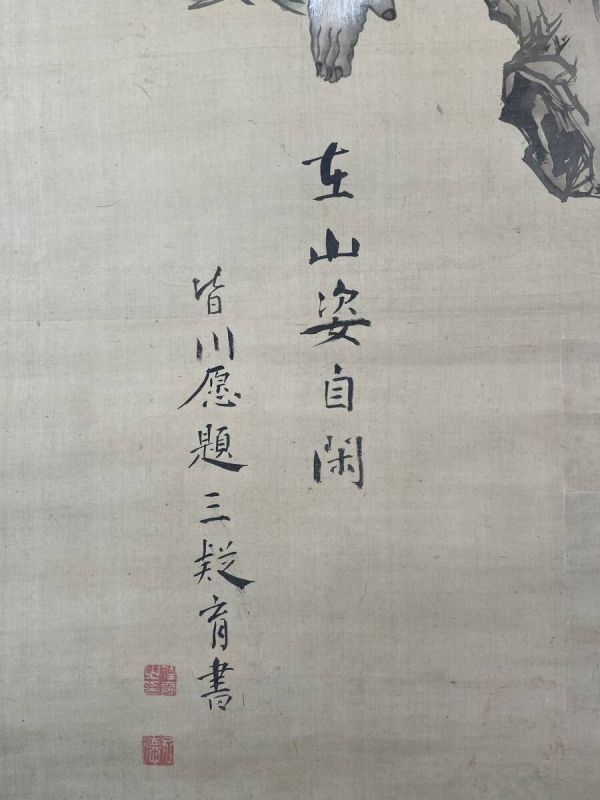 在山姿自閑
皆川愿題三疑育書